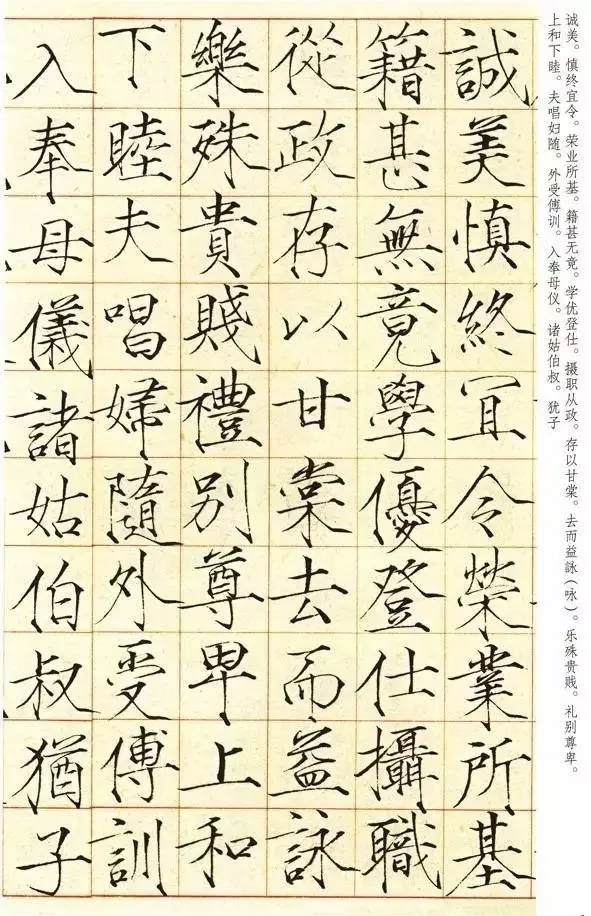 诚美。慎终宜令。荣业所基。籍甚无竟。学优登仕。摄职从政。存以甘棠。去而益詠（咏）。乐殊贵贱。礼别尊卑。
上和下睦。夫唱妇随。外受傅训。入奉母仪。诸姑伯叔。犹子
誠美慎終宜令榮業所基
籍甚無竟學優登仕攝職
從政存以甘棠去而益詠
樂殊貴賤禮别尊卑上和
下睦夫唱婦隨外受傅訓
入奉母儀諸姑伯叔猶子